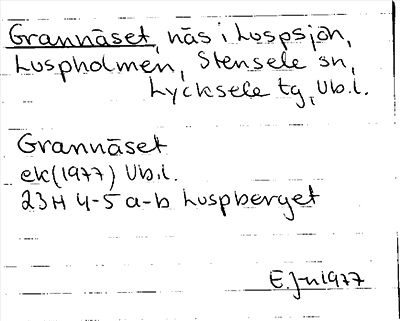 Grannäset, näs i Luspsjön,
Luspholmen, Stensele sn,
Lycksele tg, Vb.l.
Grannäset
ek (1977) Vb.l.
23H 4-5 a-b Luspberget
E. J-n 1977